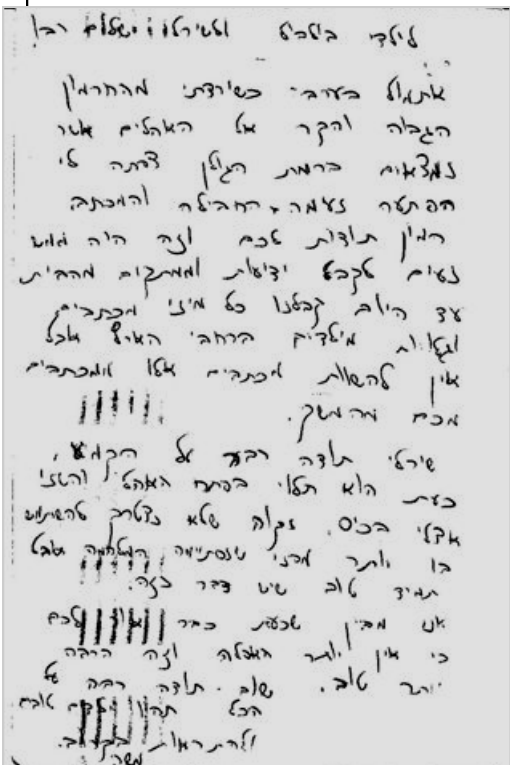 לילדי בילביל ולשירלי ושלום רב!
אתמול בערב כשירדתי מהחרמון
הגבוה והקר אל האהלים אשר
נמצאים ברמת הגולן צפתה לי
הפתעה נעימה, החבילה והמכתב.
המון תודות לכם וזה היה ממש
נעים לקבל ידיעות וממתקים מהבית
עד היום קבלנו כל מיני מכתבים
וגלויות מילדים ברחבי הארץ אבל
אין להשוות מכתבים אלו ממכתבים
מכם מהמשק.
שירלי תודה רבה על הקמע,
כעת הוא תלוי בפתח האהל והשני
אצלי בכיס. נקוה שלא נצטרך להשתמש
בו יותר מפני שנסתיימה המלחמה אבל
תמיד טוב שיש דבר כזה.
אני מבין שכעת כבר לכם
כי אין יותר האפלה וזה הרבה
יותר טוב. שוב תודה רבה על
הכל תהיו ילדים טובים
ולהתראות בקרוב.
משה